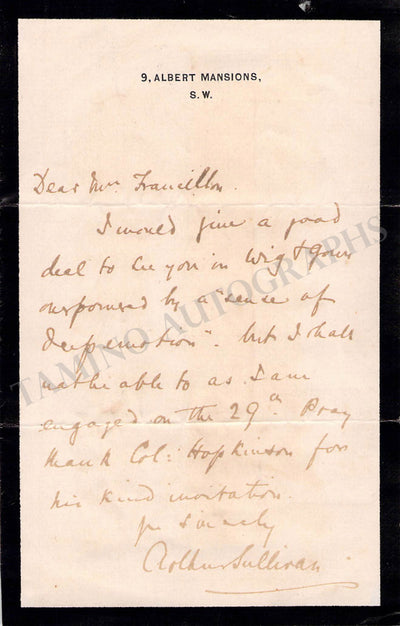 9, ALBERT MANSIONS,
S. W.
Dear Mrs Francillon.
I would give a good
deal to see you in Wig & Gown
overpowered by a "sense of
deep emotion". but I shall
not be able to as I am
engaged on the 29th. Pray
thank Col: Hopkinson for
his kind invitation.
yrs sincerely
Arthur Sullivan
TAMINO AUTOGRAPHS